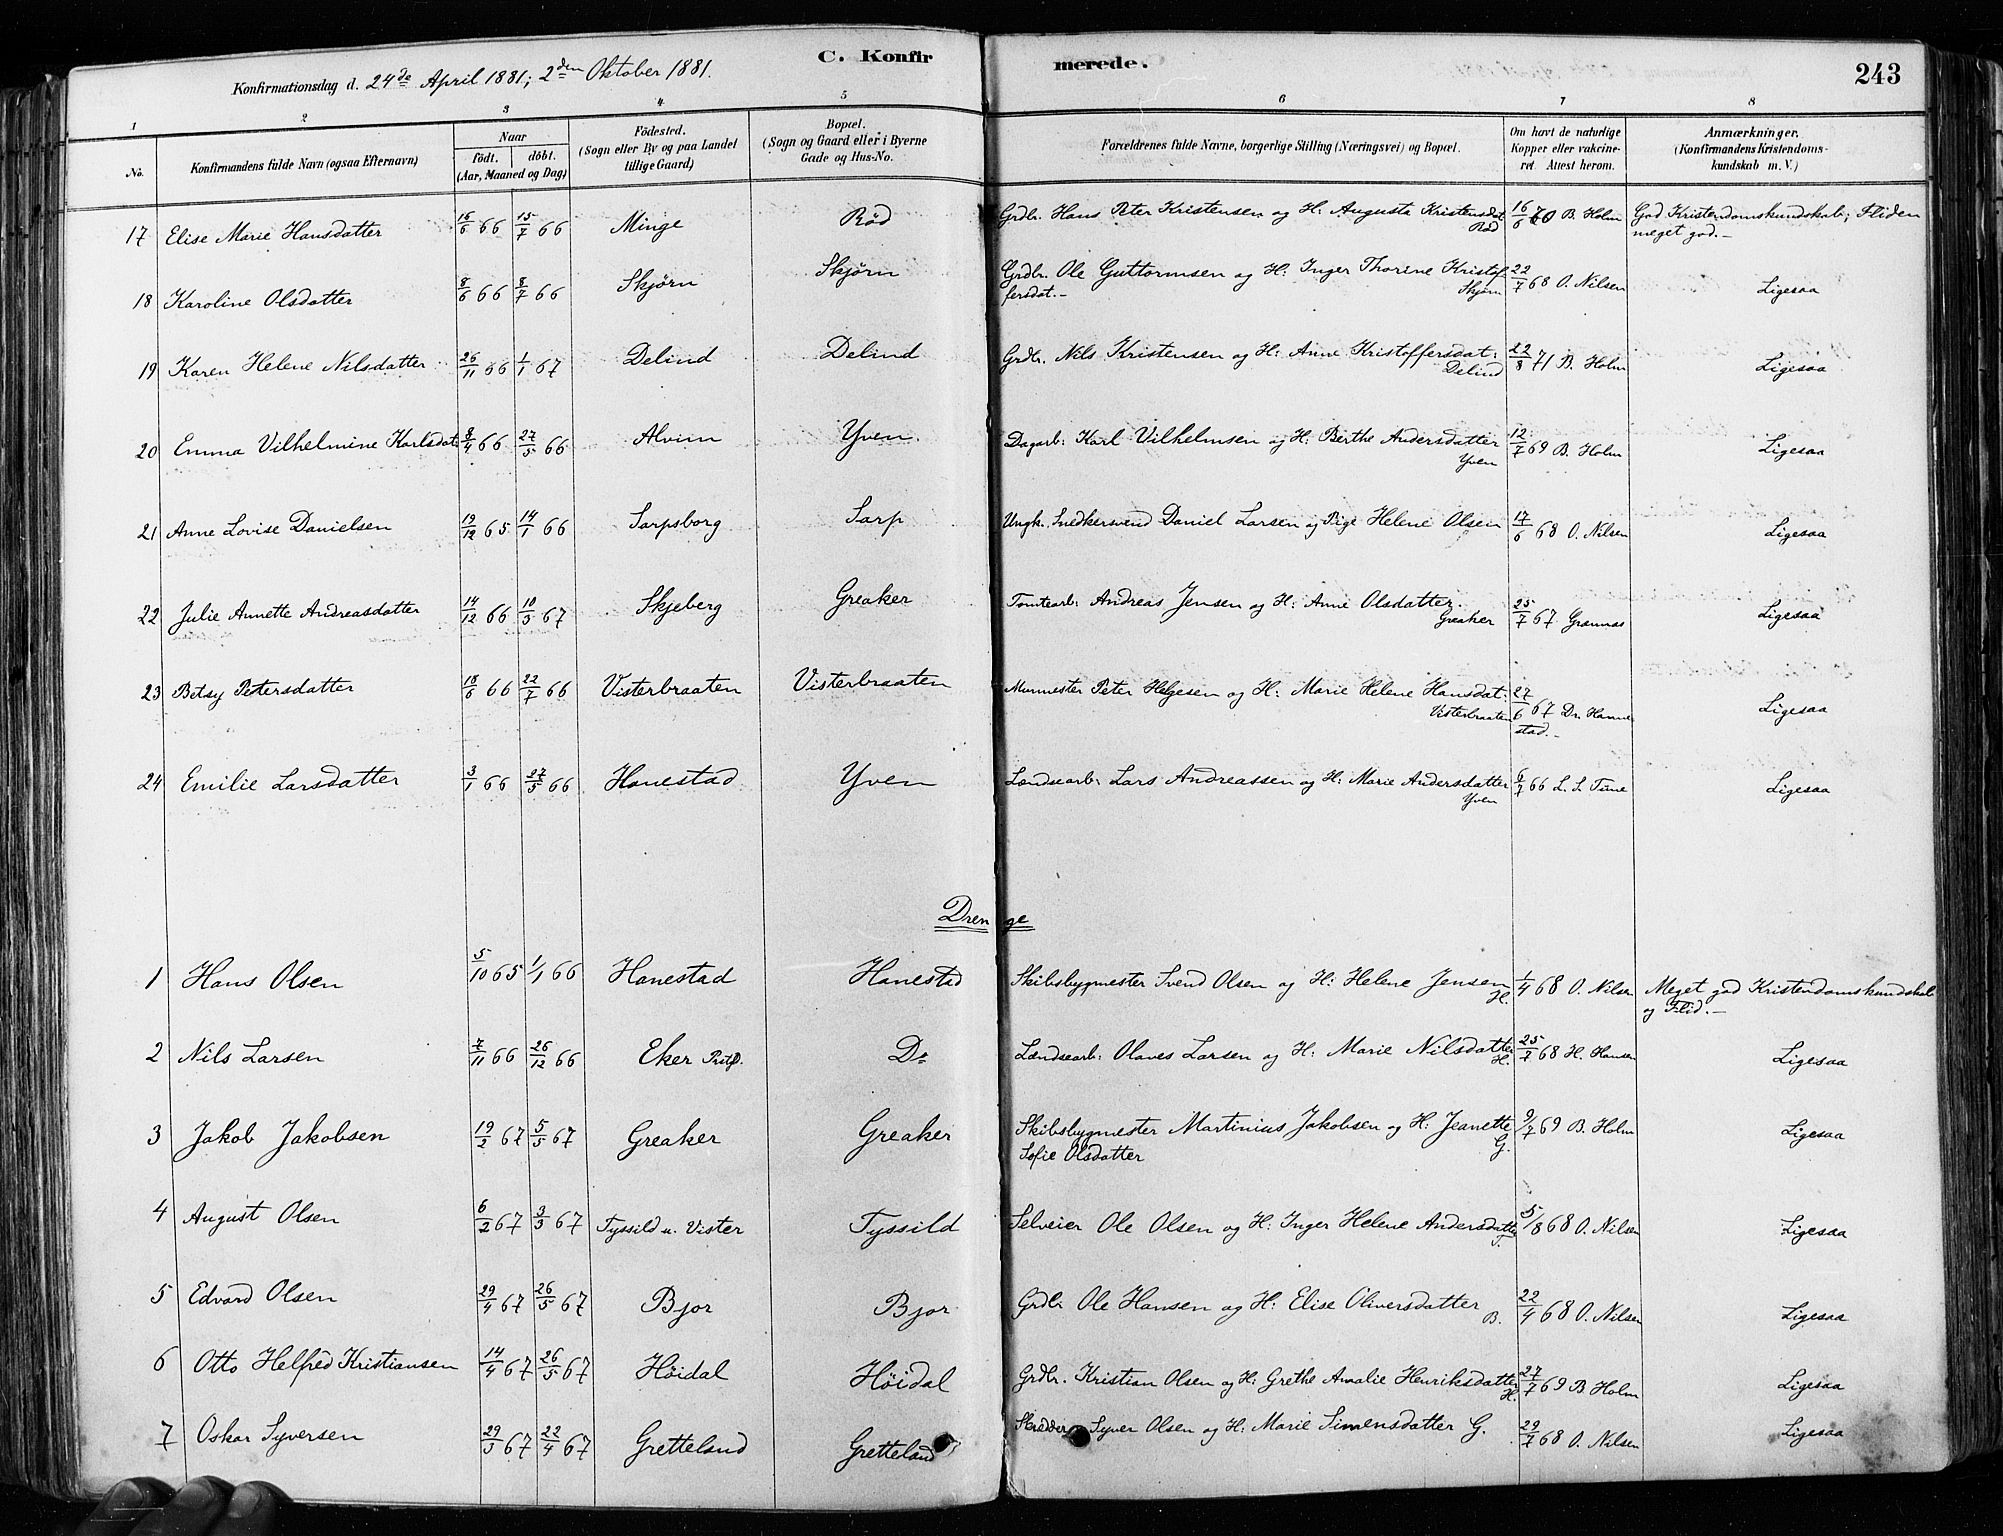 C. Konfirmerede.
243
Konfirmationsdag d. 24de April 1881; 2den Oktober 1881.
1 2 3 4 5 6 7 8
No. Konfirmandens fulde Navn (ogsaa Efternavn) Naar födt. döbt. (Aar, Maaned og Dag) Födested. (Sogn eller By og paa Landet tillige Gaard.) Bopæl. (Sogn og Gaard eller i Byerne Gade og Hus-No. Forældrenes fulde Navne, borgerlige Stilling (Næringsvei) og Bopæl. Om havt de naturlige Kopper eller vakcineret. Attest herom. Anmærkninger. (Konfirmandens Kristendomskundskab m. V.)
17 Elise Marie Hansdatter 16/6 66 15/7 66 Minge Rød Grdbr. Hans Peter Kristensen og H: Augusta Kristensdat Rød 16/6 70 B. Holm God Kristendomskundskab; Fliden meget god.—
18 Karoline Olsdatter 8/6 66 8/7 66 Skjørn Skjørn Grdbr. Ole Guttormsen og H: Inger Thorine Kristoffersdat.— Skjørn 22/7 68 O. Nilsen Ligesaa
19 Karen Helene Nilsdatter 26/11 66 1/1 67 Delind Delind Grdbr. Nils Kristensen og H: Anne Kristoffersdat: Delind 22/8 71 B. Holm Ligesaa
20 Emma Vilhelmine Karlsdat: 8/4 66 27/5 66 Alvim Yven. Dagarb: Karl Vilhelmsen og H: Berthe Andersdatter Yven 12/7 69 B. Holm Ligesaa
21 Anne Lovise Danielsen 19/12 65 14/1 66 Sarpsborg Sarp Ungk. Snedkersvend Daniel Larsen og Pige Helene Olsen 17/6 68 O. Nilsen Ligesaa
22 Julie Annette Andreasdatter 14/12 66 10/3 67 Skjeberg Greaker Tomtearb: Andreas Jensen og H: Anne Olsdatter. Greaker 25/7 67 Ligesaa
23 Betsy Petersdatter 18/6 66 22/7 66 Visterbraaten Visterbraaten Murmester Peter Helgesen og H: Marie Helene Hansdat: Visterbraaten 27/6 67 Dr. Hannestad.— Ligesaa
24 Emilie Larsdatter 3/1 66 27/5 66 Hanestad Yven Lændsearb: Lars Andreassen og H: Marie Andersdatter Yven 6/7 66 L. S. Ligesaa
Drenge
1 Hans Olsen 5/10 65 1/1 66 Hanestad Hanestad Skibsbygmester Svend Olsen og H: Helene Jensen H. 1/4 68 O. Nilsen Meget god Kristendomskundskab og Flid.—
2 Nils Larsen 7/11 66 26/12 66 Eker D: Lændsearb: Olaves Larsen og H: Marie Nilsdatter H. 25/7 68 H. Hansen Ligesaa
3 Jakob Jakobsen 19/2 67 5/5 67 Greaker Greaker Skibsbygmester Martinius Jakobsen og H: Jeanette Sofie Olsdatter G. 9/7 69 B. Holm Ligesaa
4 August Olsen 6/2 67 3/3 67 Tyssild u. Vister Tyssild Selveier Ole Olsen og H: Inger Helene Andersdatter T. 5/8 68 O. Nilsen Ligesaa
5 Edvard Olsen 29/4 67 26/5 67 Bjor Bjor Grdbr Ole Hansen og H: Elise Oliversdatter B. 22/4 68 O. Nilsen Ligesaa
6 Otto Helfred Kristiansen 14/4 67 26/5 67 Høidal Høidal Grdbr. Kristian Olsen og H: Grethe Amalie Henriksdatter H. 27/7 69 B Holm Ligesaa
7 Oskar Syversen 29/3 67 22/4 67 Gretteland Gretteland Skrædder Syver Olsen og H: Marie Simensdatter G. 29/7 68 O. Nilsen Ligesaa